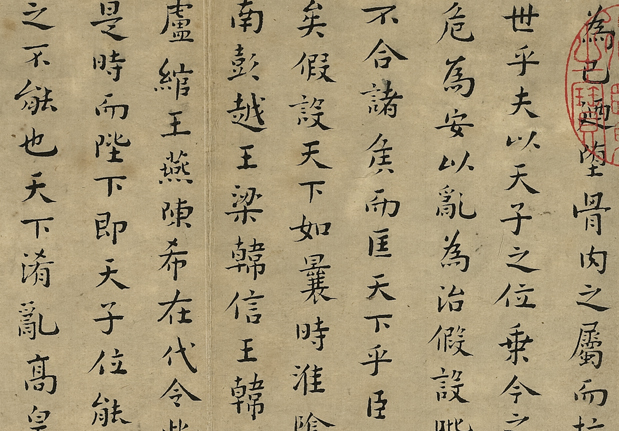 為已迺墮骨肉之屬而抗
世乎夫以天子之位乗今之
危為安以亂為治假設陛
不合諸侯而匡天下乎臣
矣假設天下如曩時淮陰
南彭越王梁韓信王韓
盧綰王燕陳希在代令此
是時而陛下即天子位能
之不能也天下淆亂高皇